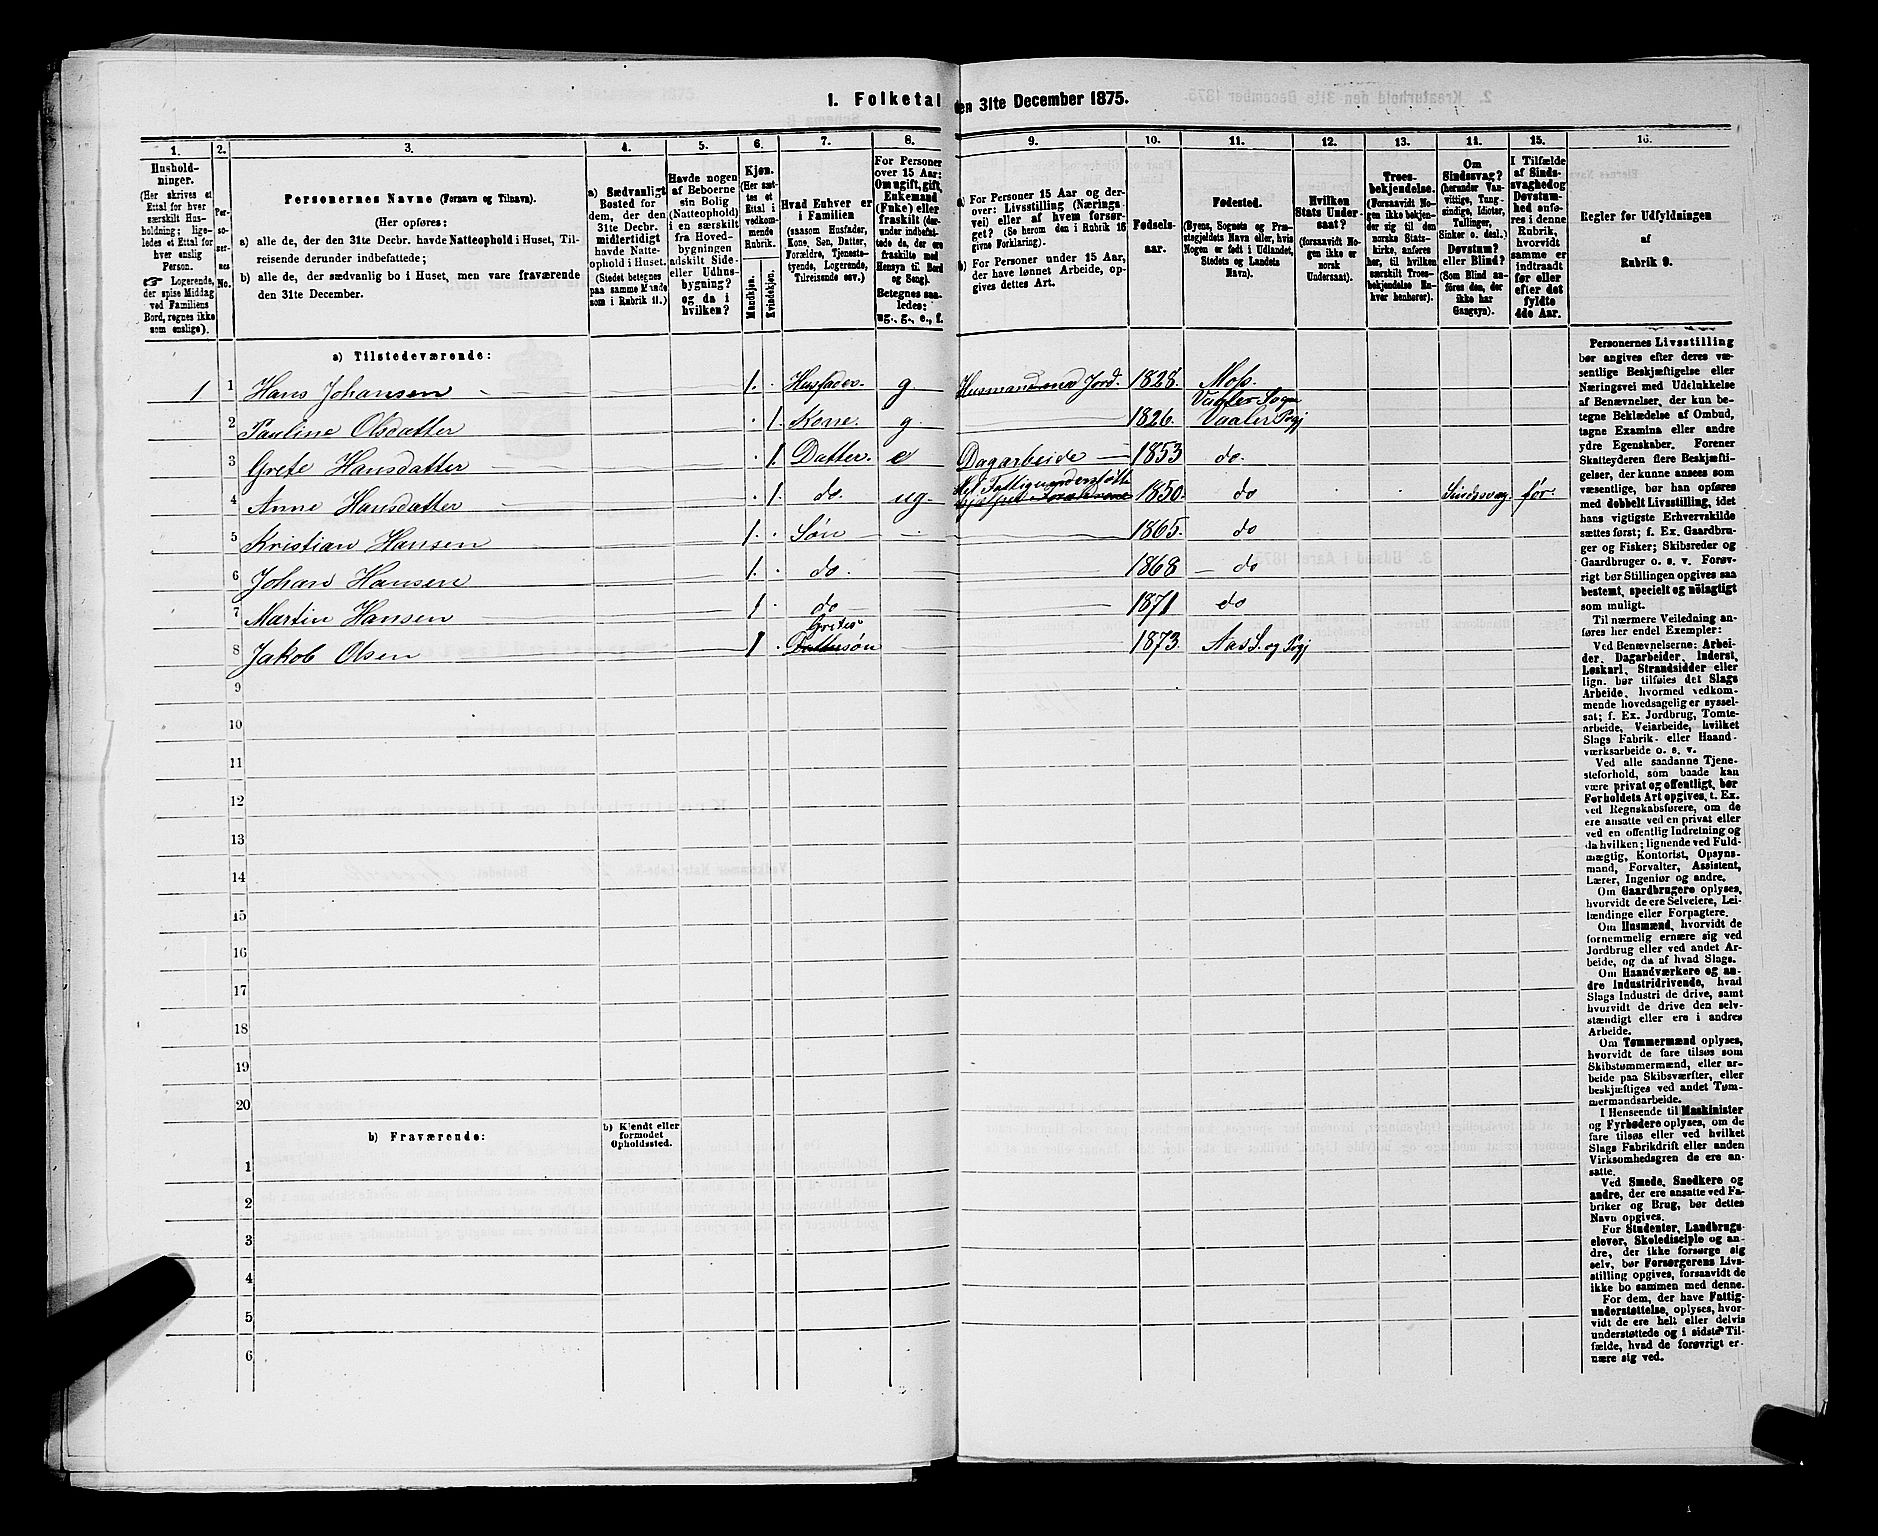 1. Folketal den 31te December 1875.
1. 2. 3. 4. 5. 6. 7. 8. 9. 10. 11. 12. 13. 14. 15. 16.
Hushold-
ninger.
(Her skrives et
Ettal for hver
særskilt Hus-
holdning; lige-
ledes et Ettal for
hver enslig
Person.
☞ Logerende,
der spise Middag
ved Familiens
Bord, regnes ikke
som enslige).
Per-
so-
ner-
nes
No.
Personernes Navne (Fornavn og Tilnavn).
(Her opføres:
a) alle de, der den 31te Decbr. havde Natteophold i Huset, Til-
reisende derunder indbefattede;
b) alle de, der sædvanlig bo i Huset, men vare fraværende
den 31te December.
a) Sædvanligt
Bosted for
dem, der den
31te Decbr.
midlertidigt
havde Natte-
ophold i Huset.
(Stedet betegnes
paa samme Maade
som i Rubrik 11.)
Havde nogen
af Beboerne
sin Bolig
(Natteophold)
i en særskilt
fra Hoved-
bygningen
adskilt Side-
eller Udhus-
bygning?
og da i
hvilken?
Kjøn.
(Her sæt-
tes et
Ettal i
vedkom-
mende
Rubrik.
Mandkjøn.
Kvindekjøn.
Hvad Enhver er
i Familien
(saasom Husfader,
Kone, Søn, Datter,
Forældre, Tjeneste-
tyende, Logerende,
Tilreisende osv.)
For Personer
over 15 Aar:
Om ugift, gift,
Enkemand
(Enke) eller
fraskilt (der-
under indbefat-
tede da, der ere
fraskilte med
Hensyn til Bord
og Seng).
Betegnes saa-
ledes:
ug., g., e., f.
a) For Personer 15 Aar og der-
over: Livsstilling (Nærings-
vei) eller af hvem forsør-
get? (Se herom den i Rubrik 16
givne Forklaring).
b) For Personer under 15 Aar,
der have lønnet Arbeide, op-
gives dettes Art.
Fødsels-
aar.
Fødested.
(Byens, Sognets og Præ-
stegjeldets Navn eller, hvis
Nogen er født i Udlandet,
Stedets og Landets
Navn).
Hvilken
Stats Under-
saat?
(forsaavidt No-
gen ikke er
norsk
Undersaat).
Troes-
bekjendelse.
(Forsaavidt No-
gen ikke bekjen-
der sig til den
norske Stats-
kirke, anføres
her, til hvilken
særskilt Troes-
bekjendelse En-
hver henhører).
Om
Sindssvag?
(herunder Van-
vittige, Tung-
sindige, Idioter,
Tullinger,
Sinker o. desl.)
Døvstum?
eller Blind?
(Som Blind an-
føres den, der
ikke har
Gangsyn).
I Tilfælde
af Sinds-
svaghed og
Døvstum-
hed anfø-
res i denne
Rubrik,
hvorvidt
samme er
indtraadt
før eller
efter det
fyldte
4de Aar.
Regler for Udfyldningen
af
Rubrik 9.
a) Tilstedeværende:
1 1 Hans Johansen 1. Husfader. g. Husmand med Jord. 1828. Moss.
Vaaler Sogn
2 Pauline Olsdatter 1. Kone. g. 1826. Vaaler Prgj
3 Grete Hansdatter 1. Datter. e Dagarbeide 1853 do.
4 Anne Hansdatter 1. do. ug. Fattigunderstøtt. 1850. do Sindssvag før
5 Kristian Hansen 1. Søn 1865. do
6 Johan Hansen 1. do. 1868 do
7 Martin Hansen 1 do 1871 do
Gretes
8 Jakob Olsen 1 Dattersøn 1873. Aas S. og Prgj
9
10
11
12
13
14
15
16
17
18
19
20
b) Fraværende:
b) Kjendt eller
formodet
Opholdssted.
1
2
3
4
5
6
Personernes Livsstilling
bør angives efter deres væ-
sentlige Beskjæftigelse eller
Næringsvei med Udelukkelse
af Benævnelser, der kun be-
tegne Beklædelse af Ombud,
tagne Examina eller andre
ydre Egenskaber. Forener
Skatteyderen flere Beskjæfti-
gelser, der kunne ansees som
væsentlige, bør han opføres
med dobbelt Livsstilling, idet
hans vigtigste Erhvervskilde
sættes først; f. Ex. Gaardbru-
ger og Fisker; Skibsreder og
Gaardbruger o. s. v. Forøv-
rigt bør Stillingen opgives saa
bestemt, specielt og nøiagtigt
som muligt.
Til nærmere Veiledning an-
føres her endel Exempler:
Ved Benævnelserne: Arbei-
der, Dagarbeider, Inderst,
Løskarl, Strandsidder eller
lign. bør tilføies det Slags
Arbeide, hvormed vedkom-
mende hovedsagelig er syssel-
sat; f. Ex. Jordbrug, Tomte-
arbeide, Veiarbeide, hvilket
Slags Fabrik- eller Haand-
værksarbeide o. s. v.
Ved alle saadanne Tjene-
steforhold, som baade kan
være privat og offentligt, bør
Forholdets Art opgives, t. Ex.
ved Regnskabsførere, om de
ere ansatte ved en privat eller
ved en offentlig Indretning og
da hvilken; lignende ved Fuld-
mægtig, Kontorist, Opsyns-
mand, Forvalter, Assistent,
Lærer, Ingeniør og andre.
Om Gaardbrugere oplyses,
hvorvidt de ere Selveiere, Lei-
lændinge eller Forpagtere.
Om Husmænd, hvorvidt de
fornemmelig ernære sig ved
Jordbrug eller ved andet Ar-
beide, og da af hvad Slags.
Om Haandværkere og an-
dre Industridrivende, hvad
Slags Industri de drive, samt
hvorvidt de drive den selv-
stændigt eller ere i andres
Arbeide.
Om Tømmermænd oplyses,
hvorvidt de fare tilsøs som
Skibstømmermænd, eller ar-
beide paa Skibsværfter, eller
beskjæftiges ved andet Tøm-
mermandsarbeide.
I Henseende til Maskinister
og Fyrbødere oplyses, om de
fare tilsøs eller ved hvilket
Slags Fabrikdrift eller anden
Virksomhedsgren de ere an-
satte.
Ved Smede, Snedkere og
andre, der ere ansatte ved Fa-
briker og Brug, bør dettes
Navn opgives.
For Studenter, Landbrugs-
elever, Skoledisciple og an-
dre, der ikke forsørge sig
selv, bør Forsørgerens Livs-
stilling opgives, forsaavidt de
ikke bo sammen med denne.
For dem, der have Fattig-
understøttelse, oplyses, hvor-
vidt de ere helt eller delvis
understøttede og i sidste Til-
fælde, hvad de forøvrigt er-
nære sig ved.